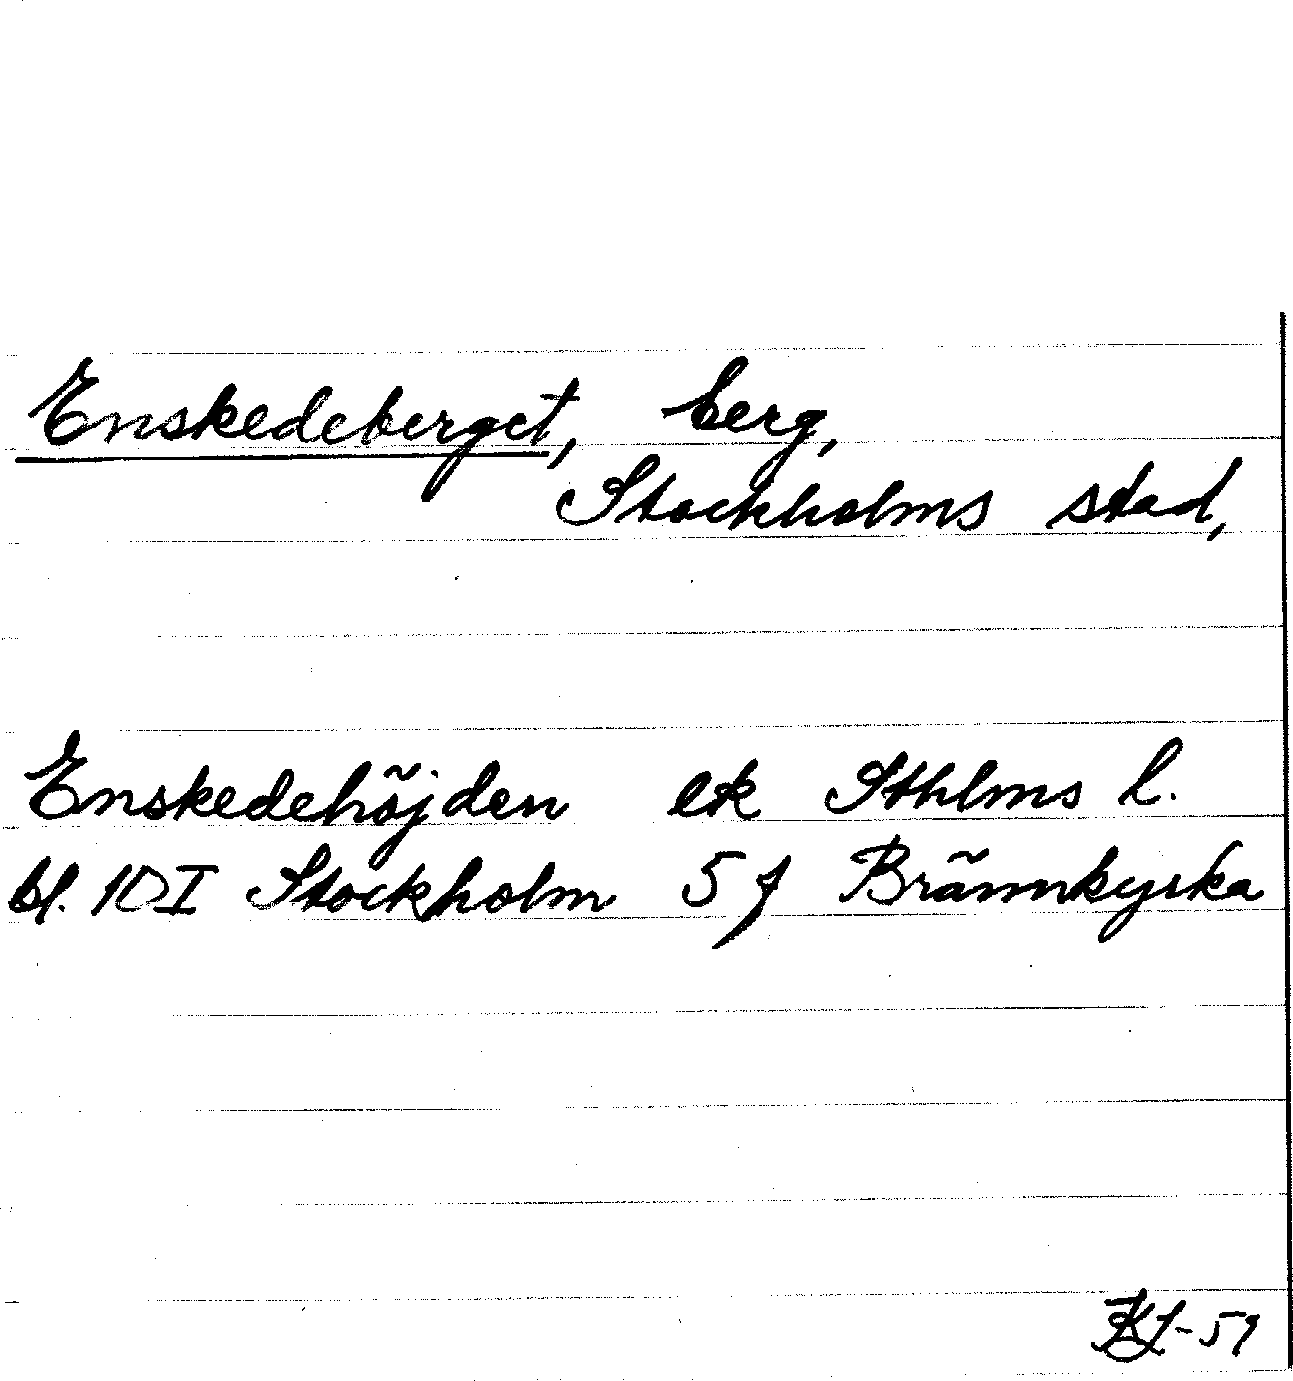 Enskedeberget, berg,
Stockholms stad,
Enskedehöjden ek Sthlms l.
bl. 10I Stockholm 5 f Brännkyrka
-59